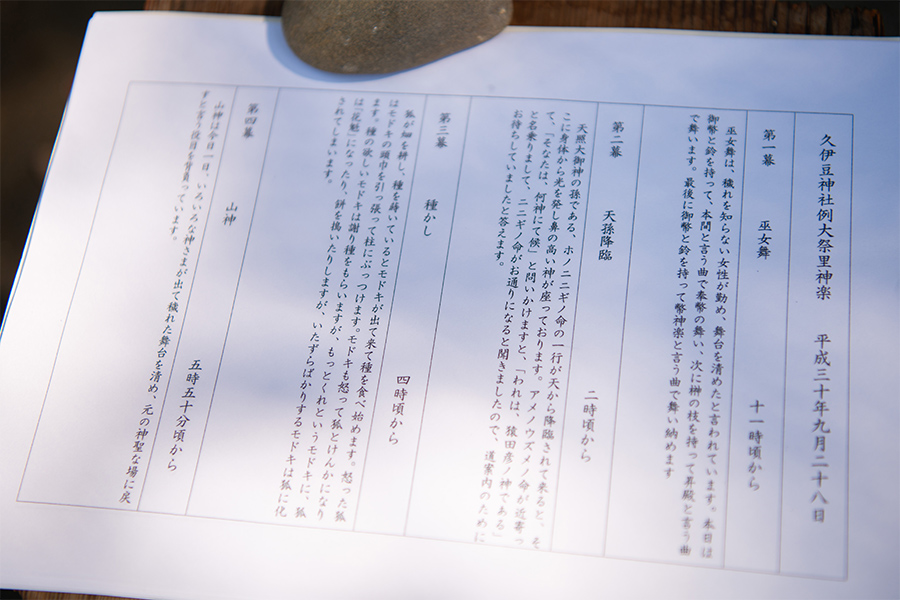 久伊豆神社例大祭里神楽 平成三十年九月二十八日
第一幕 巫女舞 十一時頃から
巫女舞は、穢れを知らない女性が勤め、舞台を清めたと言われています。本日は
御幣と鈴を持って、本間と言う曲で奉幣の舞い、次に榊の枝を持って昇殿と言う曲
で舞います。最後に御幣と鈴を持って幣神楽と言う曲で舞い納めます
第二幕 天孫降臨 二時頃から
天照大御神の孫である、ホノニニギノ命の一行が天から降臨されて来ると、そ
こに身体から光を発し鼻の高い神が座っております。アメノウズメノ命が近寄っ
て、「そなたは、何神にて候」と問いかけますと、「われは、猿田彦ノ神である」
と名乗りまして、ニニギノ命がお通りになると聞きましたので、道案内のために
お待ちしていましたと答えます。
第三幕 種かし 四時頃から
狐が畑を耕し、種を蒔いているとモドキが出て来て種を食べ始めます。怒った狐
はモドキの頭巾を引っ張って柱にぶっつけます。モドキも怒って狐とけんかになり
ます。種の欲しいモドキは謝り種をもらいますが、もっとくれというモドキに、狐
は「花魁」になったり、餅を搗いたりしますが、いたずらばかりするモドキは狐に化
されてしまいます。
第四幕 山神 五時五十分頃から
山神は今日一日、いろいろな神さまが出て穢れた舞台を清め、元の神聖な場に戻
すと言う役目を背負っています。